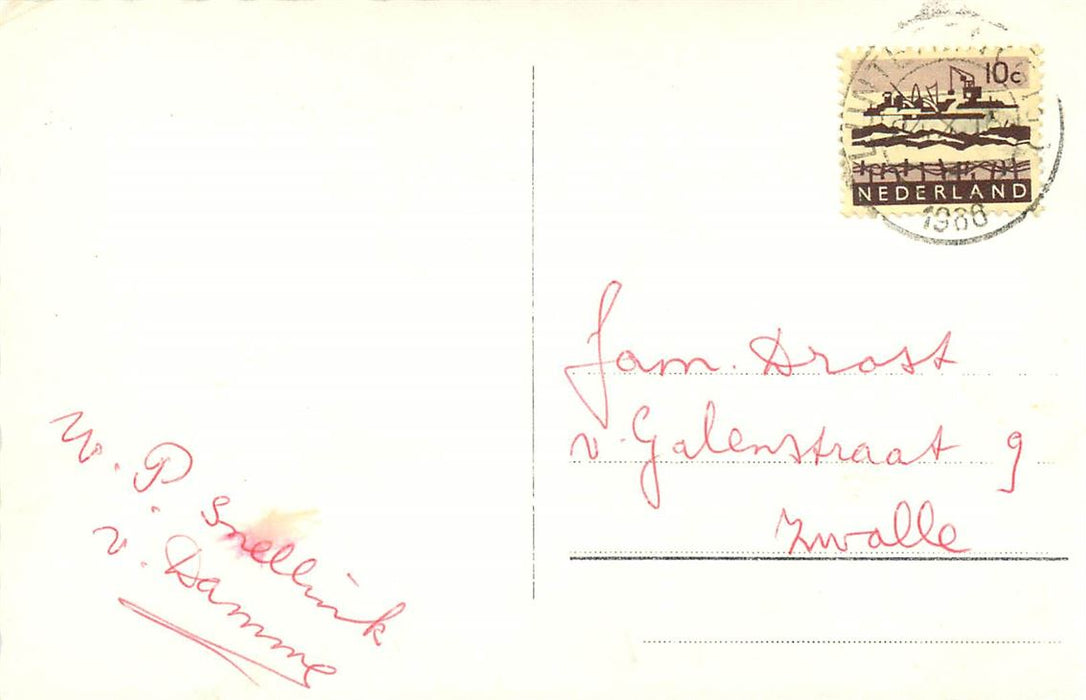 10c
NEDERLAND
1966
Fam. Drost
v. Galenstraat 9
Zwolle
W. P. Snellink
v. Damme